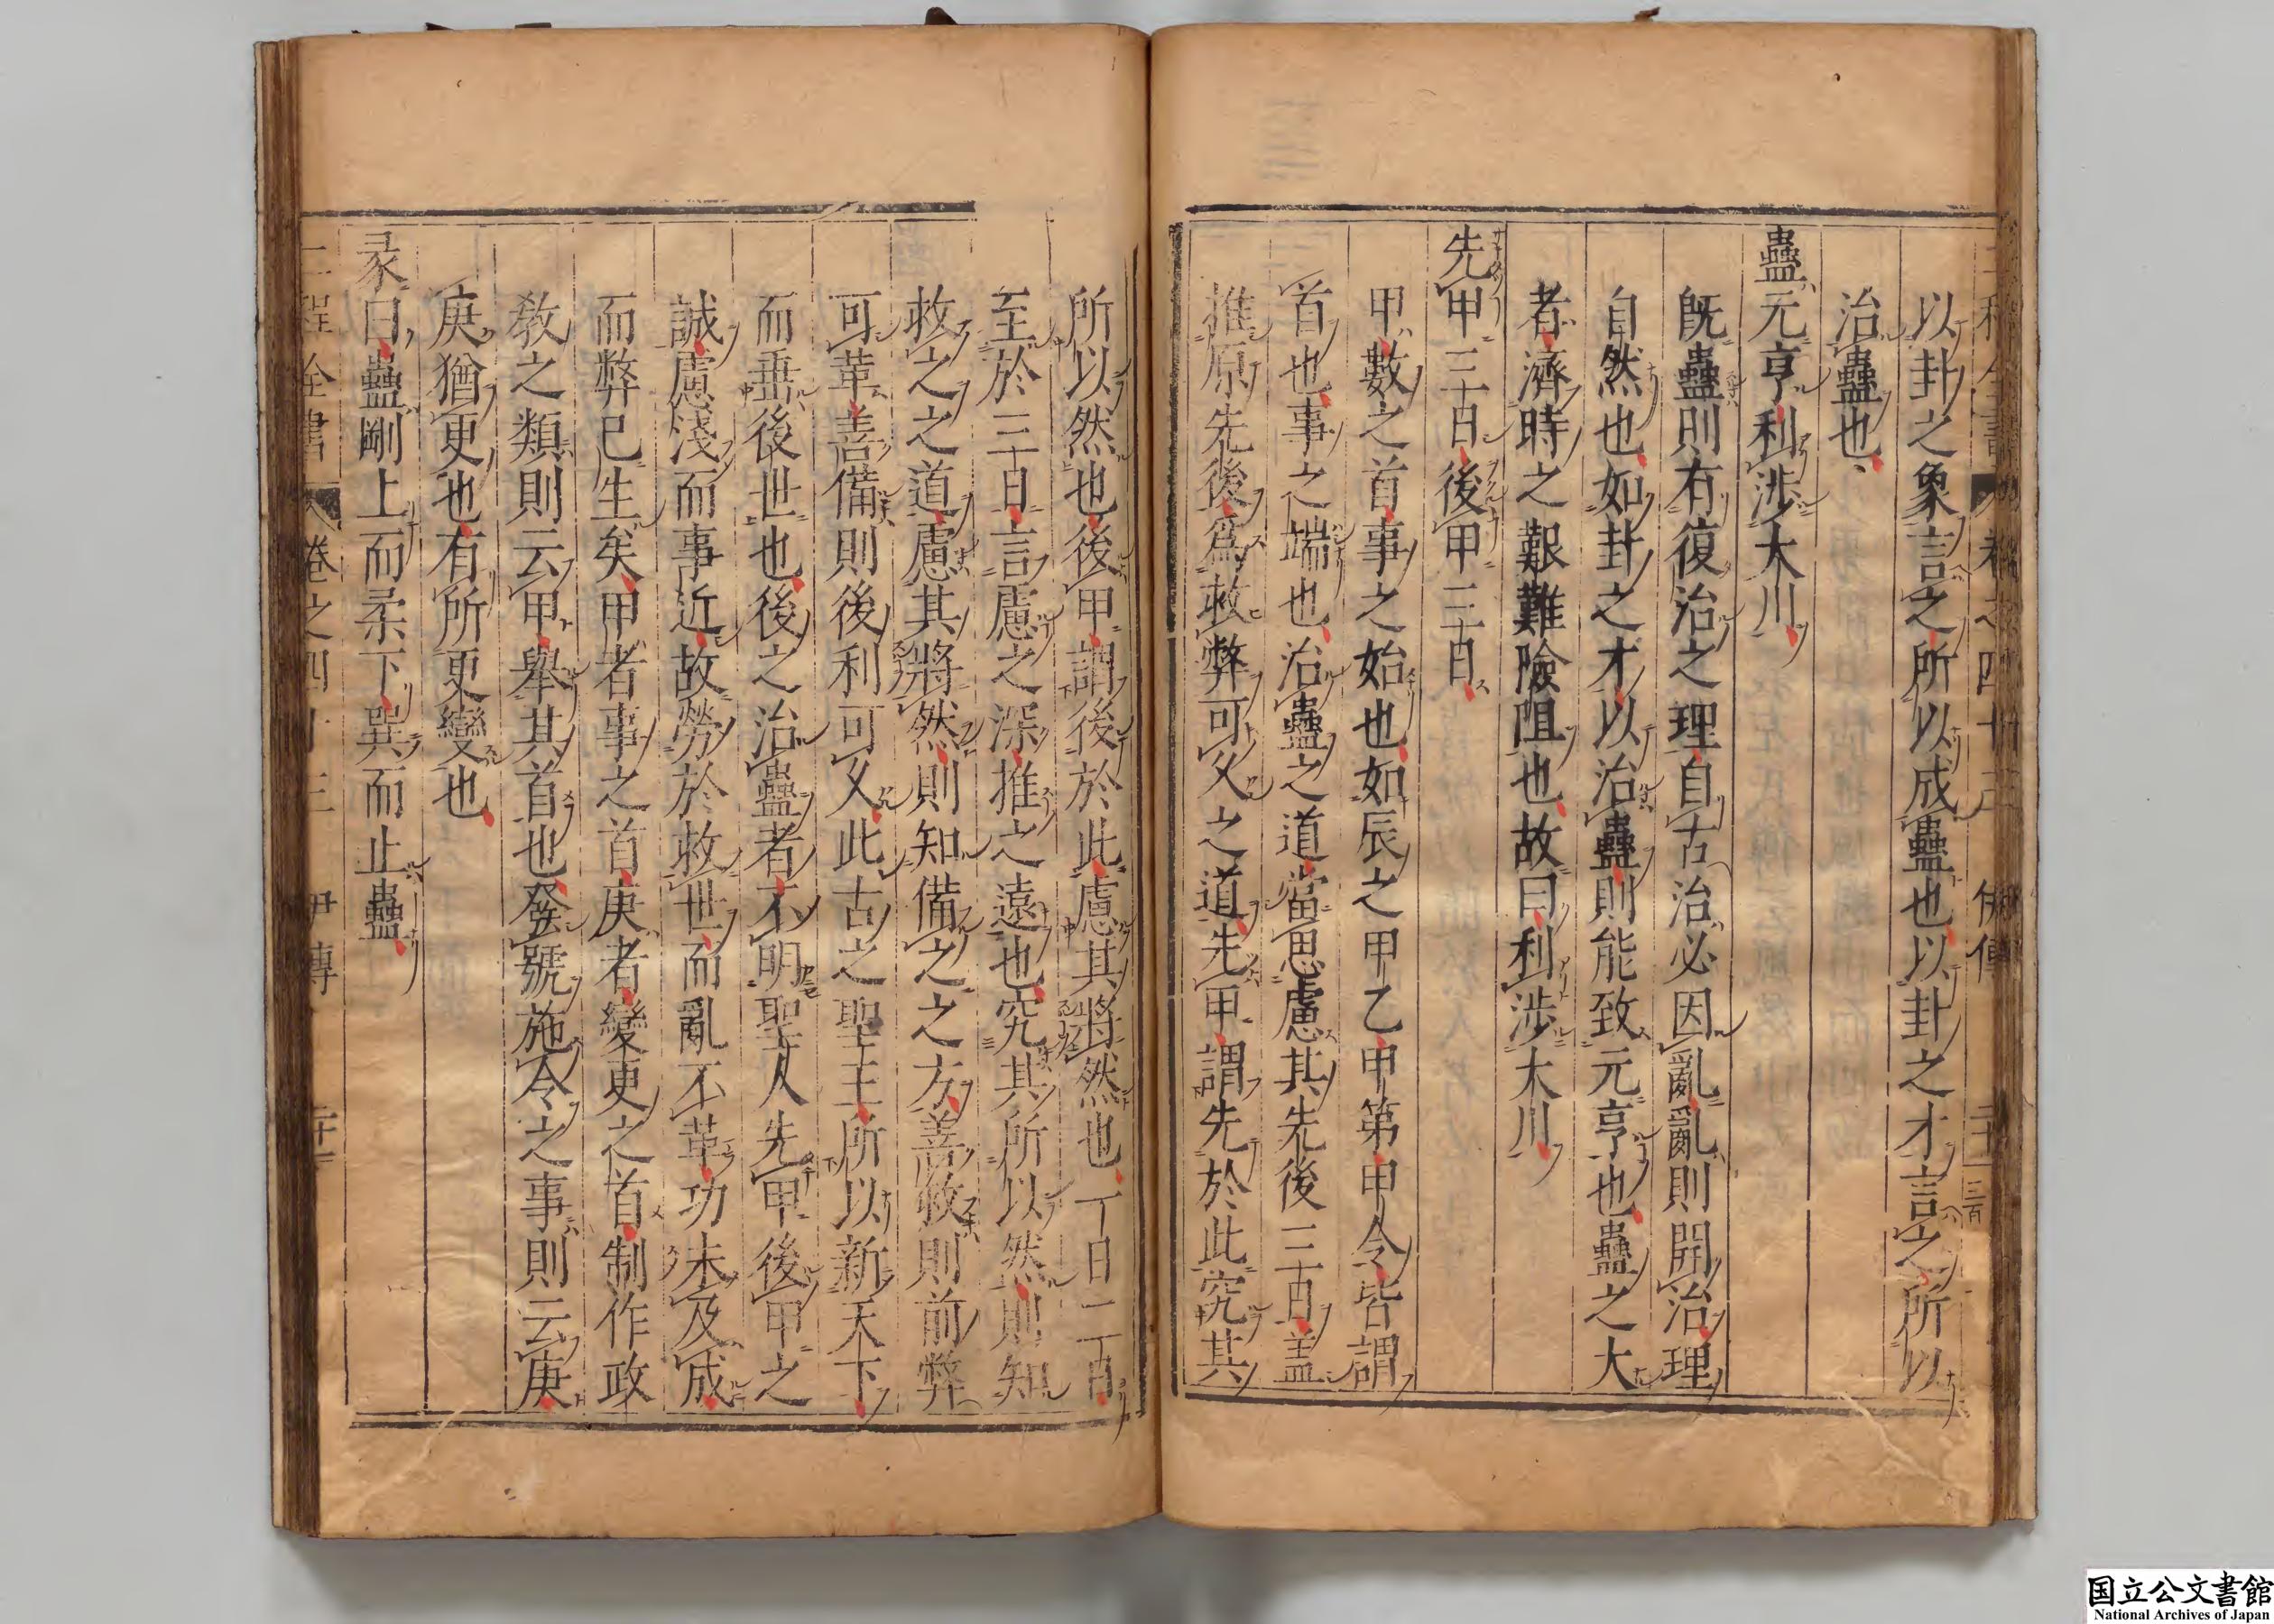 以卦之象言之所以成蠱也以卦之才言之所以
治蠱也
蠱元亨利涉大川
既蠱則有復治之理自古治必因亂亂則開治理
自然也如卦之才以治蠱則能致元亨也蠱之大
者濟時之艱難險阻也故曰利涉大川
先甲三日後甲三日
甲數之首事之始也如辰之甲乙甲第甲令皆謂
首也事之端也治蠱之道當思慮其先後三日盖
推原先後爲救弊可久之道先甲謂先於此究其
所以然也後甲謂後於此慮其將然也一日二日
至於三日言慮之深推之遠也究其所以然則知
救之之道慮其將然則知備之之方善救則前弊
可革善備則後利可久此古之聖王所以新天下
而垂後世也後之治蠱者不明聖人先甲後甲之
誠慮淺而事近故勞於救世而亂不革功未及成
而弊已生矣甲者事之首庚者變更之首制作政
教之類則云甲舉其首也發號施令之事則云庚
庚猶更也有所更變也
彖曰蠱剛上而柔下巽而止蠱
二程全書 卷之四十三 伊傳
国立公文書館
National Archives of Japan